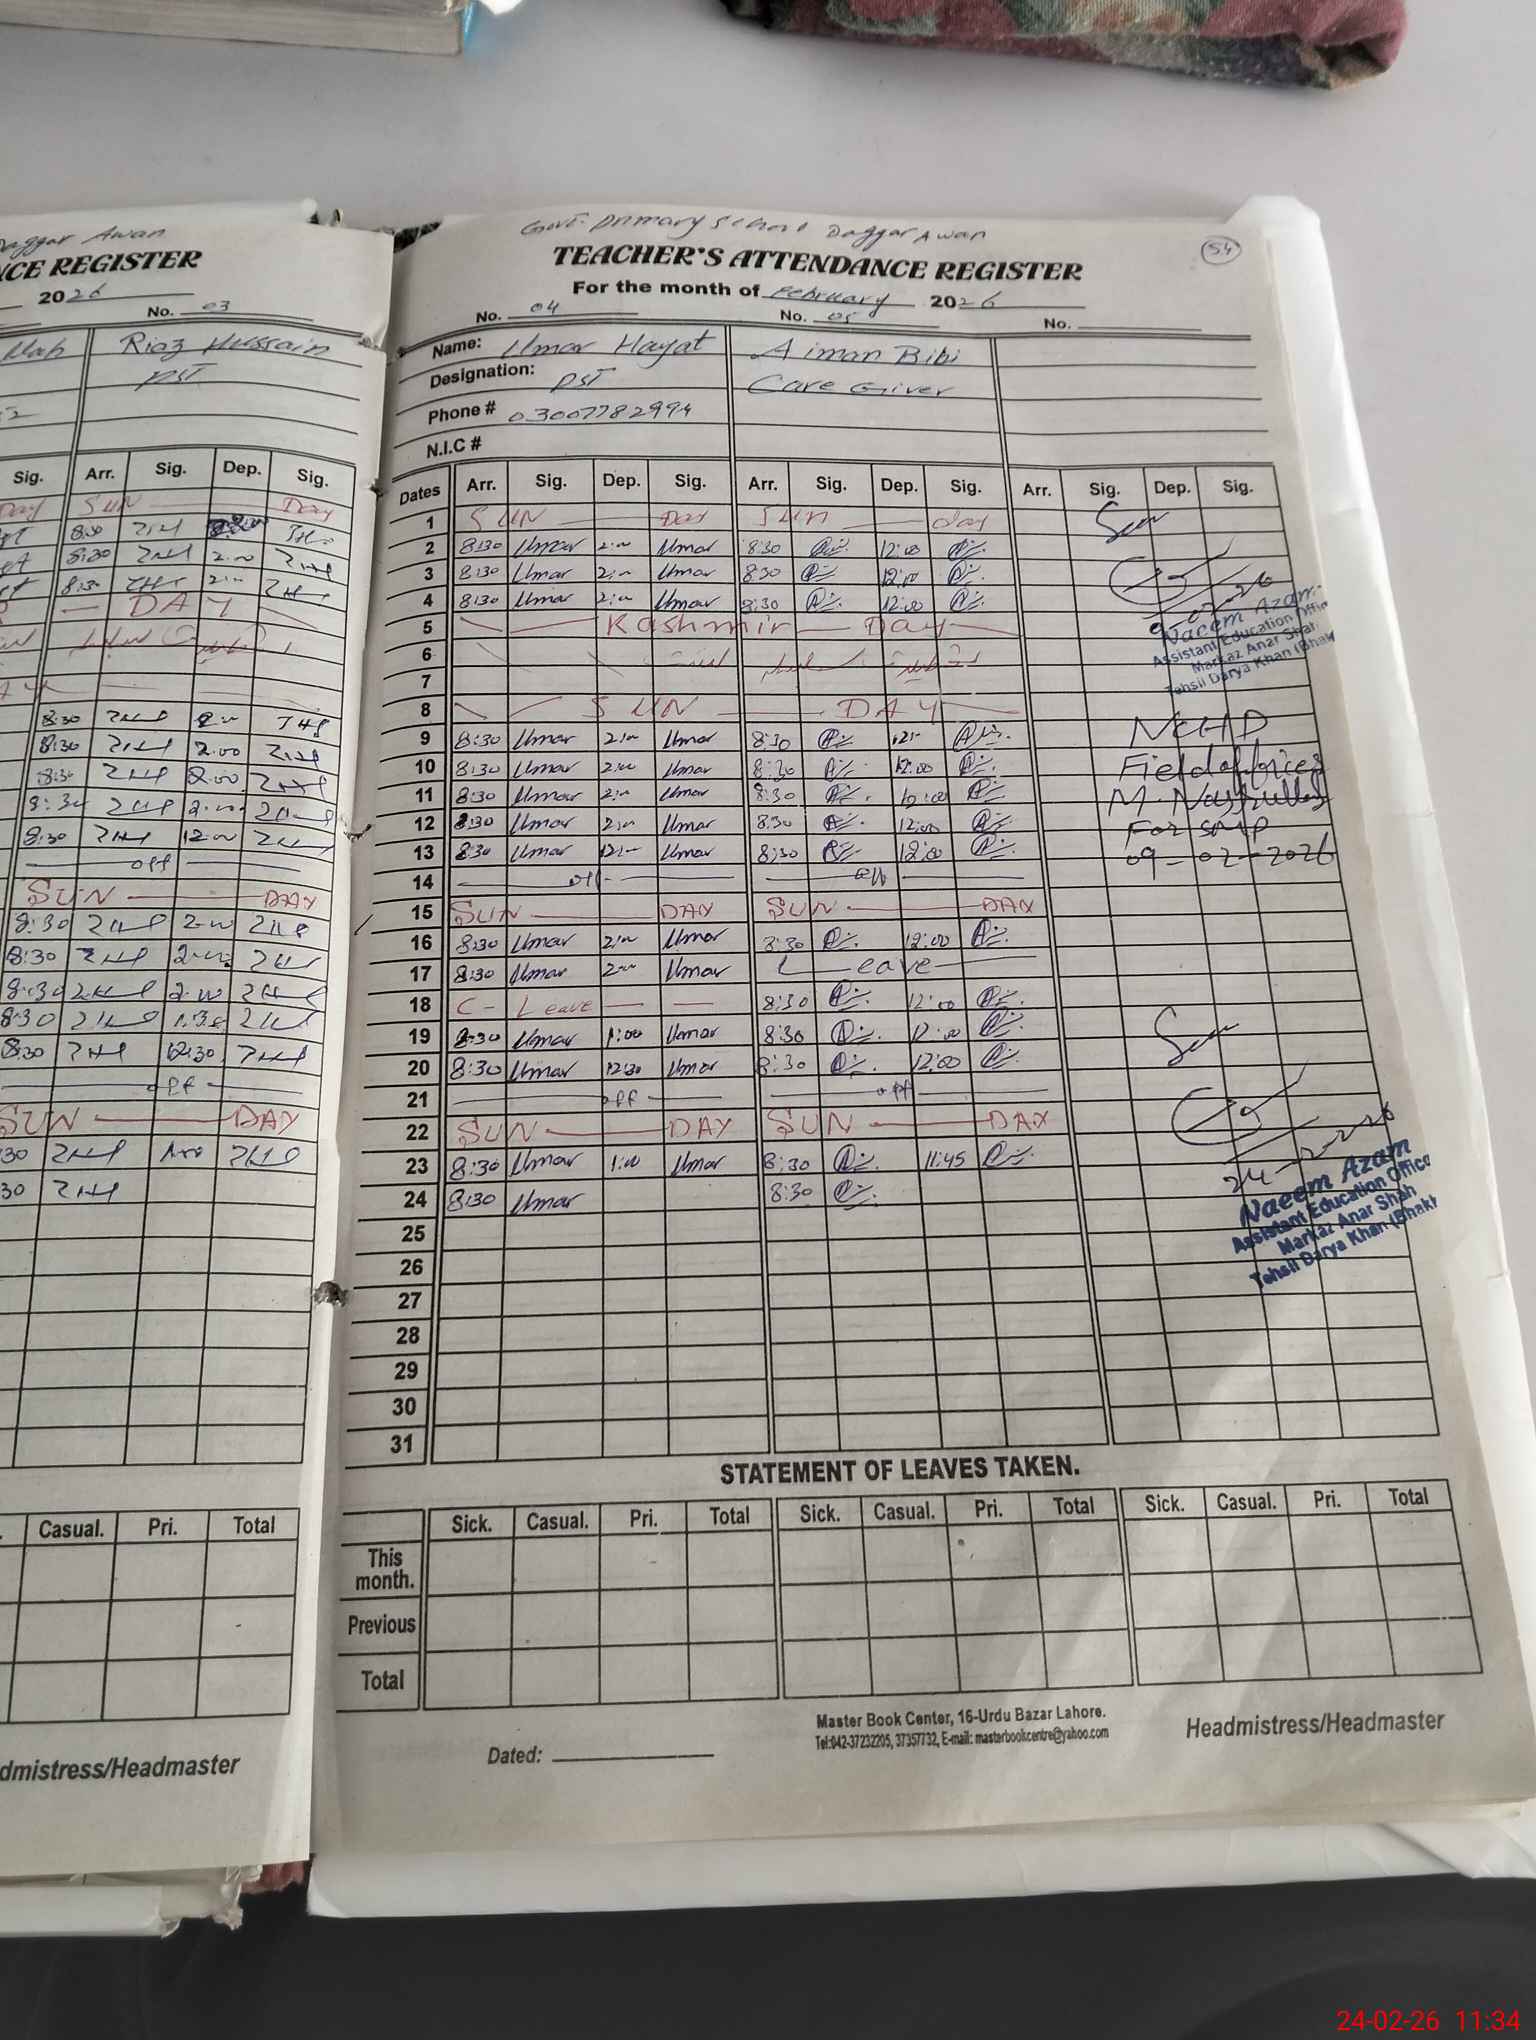 Daggar Awan
NCE REGISTER
2026
No. 03
Riaz Hussain
PST
Sig. Arr. Sig. Dep. Sig.
Day SUN Day
8:30
8:30 2:00
8:30
DAY
8:30
8:30 2:00
8:30 2:00
8:30 2:00
8:30 12:00
off
SUN DAY
8:30
8:30
8:30
8:30 1:30
8:30 12:30
off
SUN DAY
30 1:00
30
Casual. Pri. Total
dmistress/Headmaster
Govt. Primary School Daggar Awan
54
TEACHER'S ATTENDANCE REGISTER
For the month of February 2026
No. 04 No. 05 No.
Name: Umar Hayat Aiman Bibi
Designation: PST Care Giver
Phone # 03007782994
N.I.C #
Dates Arr. Sig. Dep. Sig. Arr. Sig. Dep. Sig. Arr. Sig. Dep. Sig.
1 SUN Day SUN day
2 8:30 Umar 2:00 Umar 8:30 12:00
3 8:30 Umar 2:00 Umar 8:30 12:00
4 8:30 Umar 2:00 Umar 8:30 12:00
5 Kashmir Day
6
7
8 SUN DAY
9 8:30 Umar 2:00 Umar 8:30 12:00
10 8:30 Umar 2:00 Umar 8:30 12:00
11 8:30 Umar 2:00 Umar 8:30 12:00
12 8:30 Umar 2:00 Umar 8:30 12:00
13 8:30 Umar 12:00 Umar 8:30 12:00
14 off off
15 SUN DAY SUN DAY
16 8:30 Umar 2:00 Umar 8:30 12:00
17 8:30 Umar 2:00 Umar Leave
18 C- Leave 8:30 12:00
19 8:30 Umar 1:00 Umar 8:30 12:00
20 8:30 Umar 12:30 Umar 8:30 12:00
21 off off
22 SUN DAY SUN DAY
23 8:30 Umar 1:00 Umar 8:30 11:45
24 8:30 Umar 8:30
25
26
27
28
29
30
31
Naeem Azam
Assistant Education Office
Markaz Anar Shah
Tehsil Darya Khan (Bhak
NCHD
Field officer
M. Nasrullah
For SMP
09-02-2026
24-2-2026
Naeem Azam
Assistant Education Office
Markaz Anar Shah
Tehsil Darya Khan (Bhak
STATEMENT OF LEAVES TAKEN.
Sick. Casual. Pri. Total Sick. Casual. Pri. Total Sick. Casual. Pri. Total
This month.
Previous
Total
Master Book Center, 16-Urdu Bazar Lahore.
Tel:042-37232205, 37357732, E-mail: masterbookcentre@yahoo.com
Dated:
Headmistress/Headmaster
24-02-26 11:34